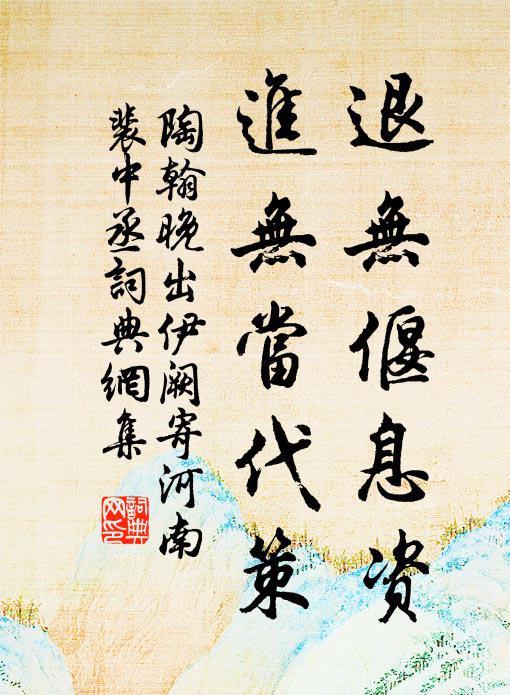 退無偃息资
進無當代策
陶翰晚出伊阙寄河南
裴中丞詞典網集
詞典
网印